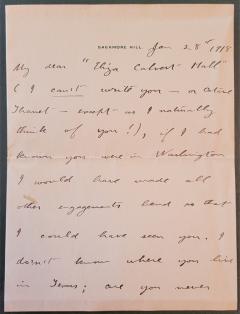 SAGAMORE HILL. Jan 28th 1918
My dear "Eliza Calvert Hall"
(I can't write you — or Octave
Thanet — except as I naturally
think of you!), if I had
known you were in Washington
I would have made all
other engagements bend so that
I could have seen you. I
doesn't know where you live
in Texas; are you never